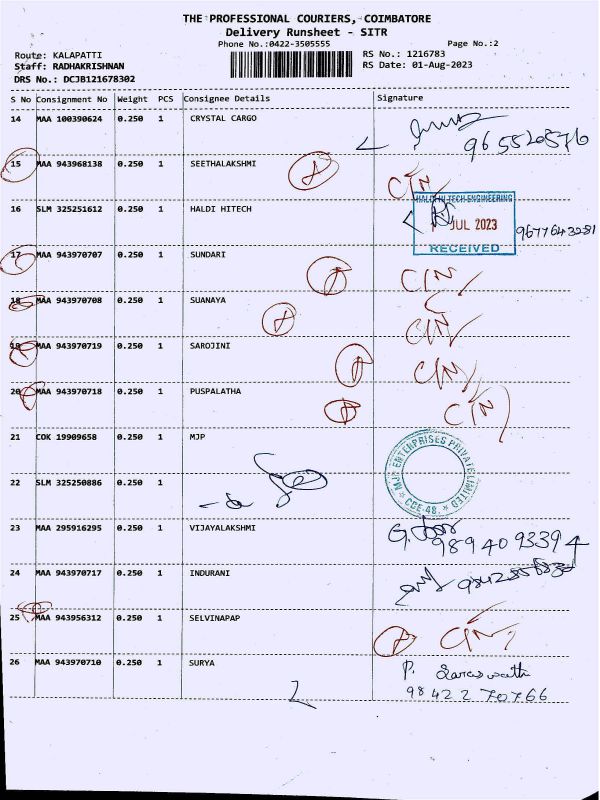 THE PROFESSIONAL COURIERS, COIMBATORE
Delivery Runsheet - SITR
Phone No.:0422-3505555
Page No.:2
Route: KALAPATTI
Staff: RADHAKRISHNAN
DRS No.: DCJB121678302
RS No.: 1216783
RS Date: 01-Aug-2023
S No Consignment No Weight PCS Consignee Details Signature
14 MAA 100390624 0.250 1 CRYSTAL CARGO
9655208576
15 MAA 943968138 0.250 1 SEETHALAKSHMI
C/N
16 SLM 325251612 0.250 1 HALDI HITECH
HALDI HI TECH ENGINEERING
JUL 2023
RECEIVED
9677643281
17 MAA 943970707 0.250 1 SUNDARI C/N
18 MAA 943970708 0.250 1 SUANAYA C/N
19 MAA 943970719 0.250 1 SAROJINI C/N
20 MAA 943970718 0.250 1 PUSPALATHA C/N
21 COK 19909658 0.250 1 MJP
MJP ENTERPRISES PRIVATE LIMITED
CBE-48.
22 SLM 325250886 0.250 1
23 MAA 295916295 0.250 1 VIJAYALAKSHMI
9894093394
24 MAA 943970717 0.250 1 INDURANI
25 MAA 943956312 0.250 1 SELVINAPAP C/N
26 MAA 943970710 0.250 1 SURYA P. Saraswathi
9842270766